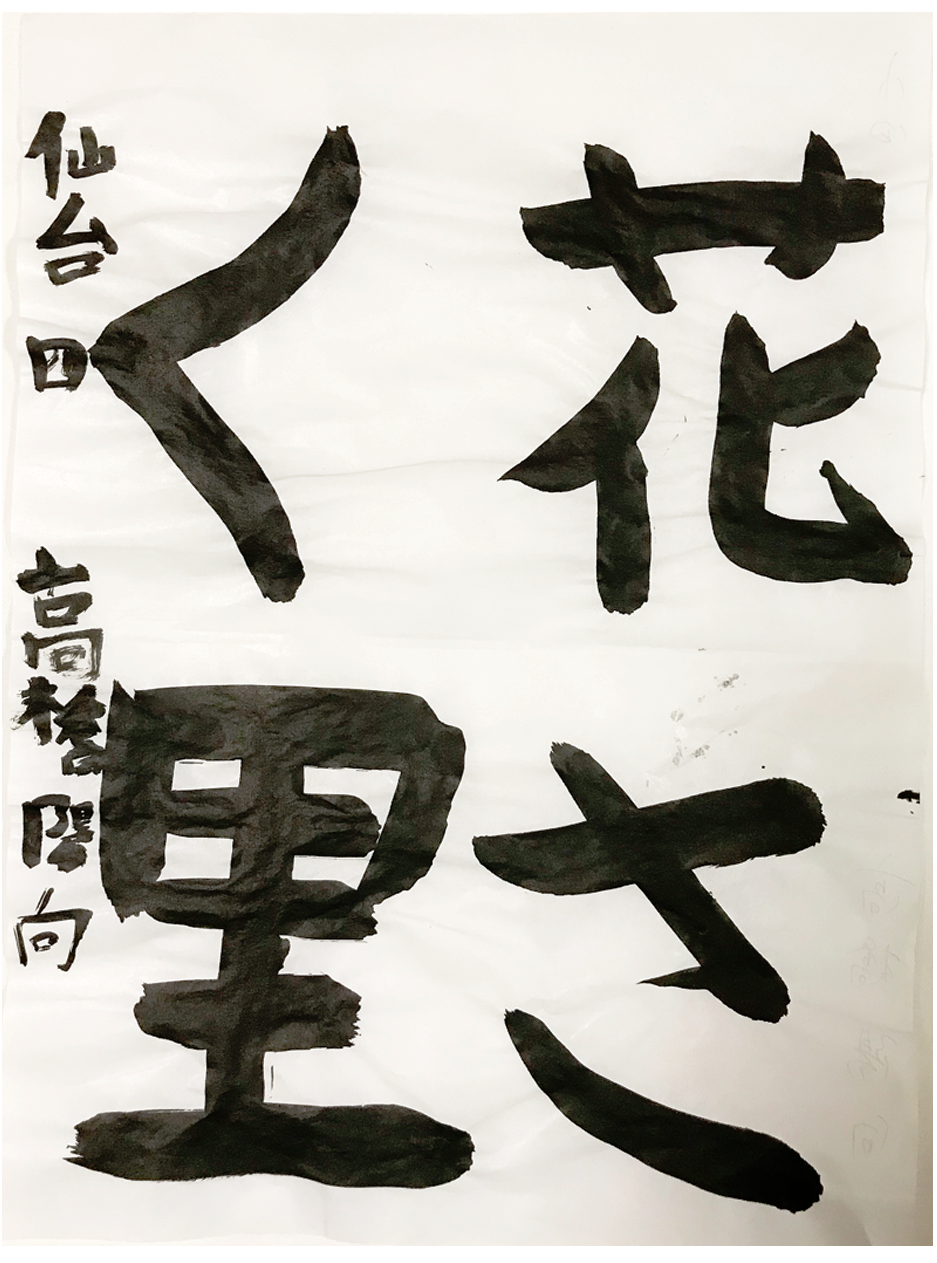 花さ
く里
仙台 四 高橋 向